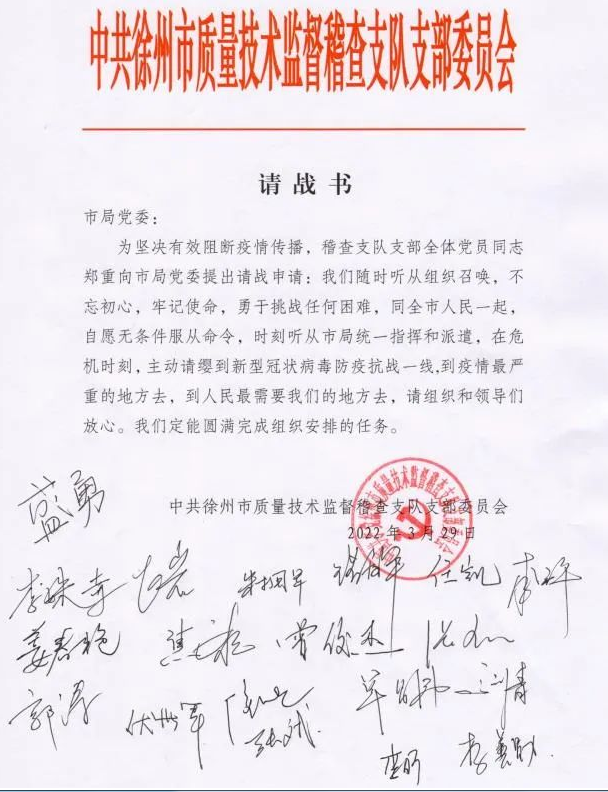 中共徐州市质量技术监督稽查支队支部委员会
请战书
市局党委：
为坚决有效阻断疫情传播，稽查支队支部全体党员同志
郑重向市局党委提出请战申请：我们随时听从组织召唤，不
忘初心，牢记使命，勇于挑战任何困难，同全市人民一起，
自愿无条件服从命令，时刻听从市局统一指挥和派遣，在危
机时刻，主动请缨到新型冠状病毒防疫抗战一线,到疫情最严
重的地方去，到人民最需要我们的地方去，请组织和领导们
放心。我们定能圆满完成组织安排的任务。
中共徐州市质量技术监督稽查支队支部委员会
2022年3月29日
盛勇
任凯
郭涛